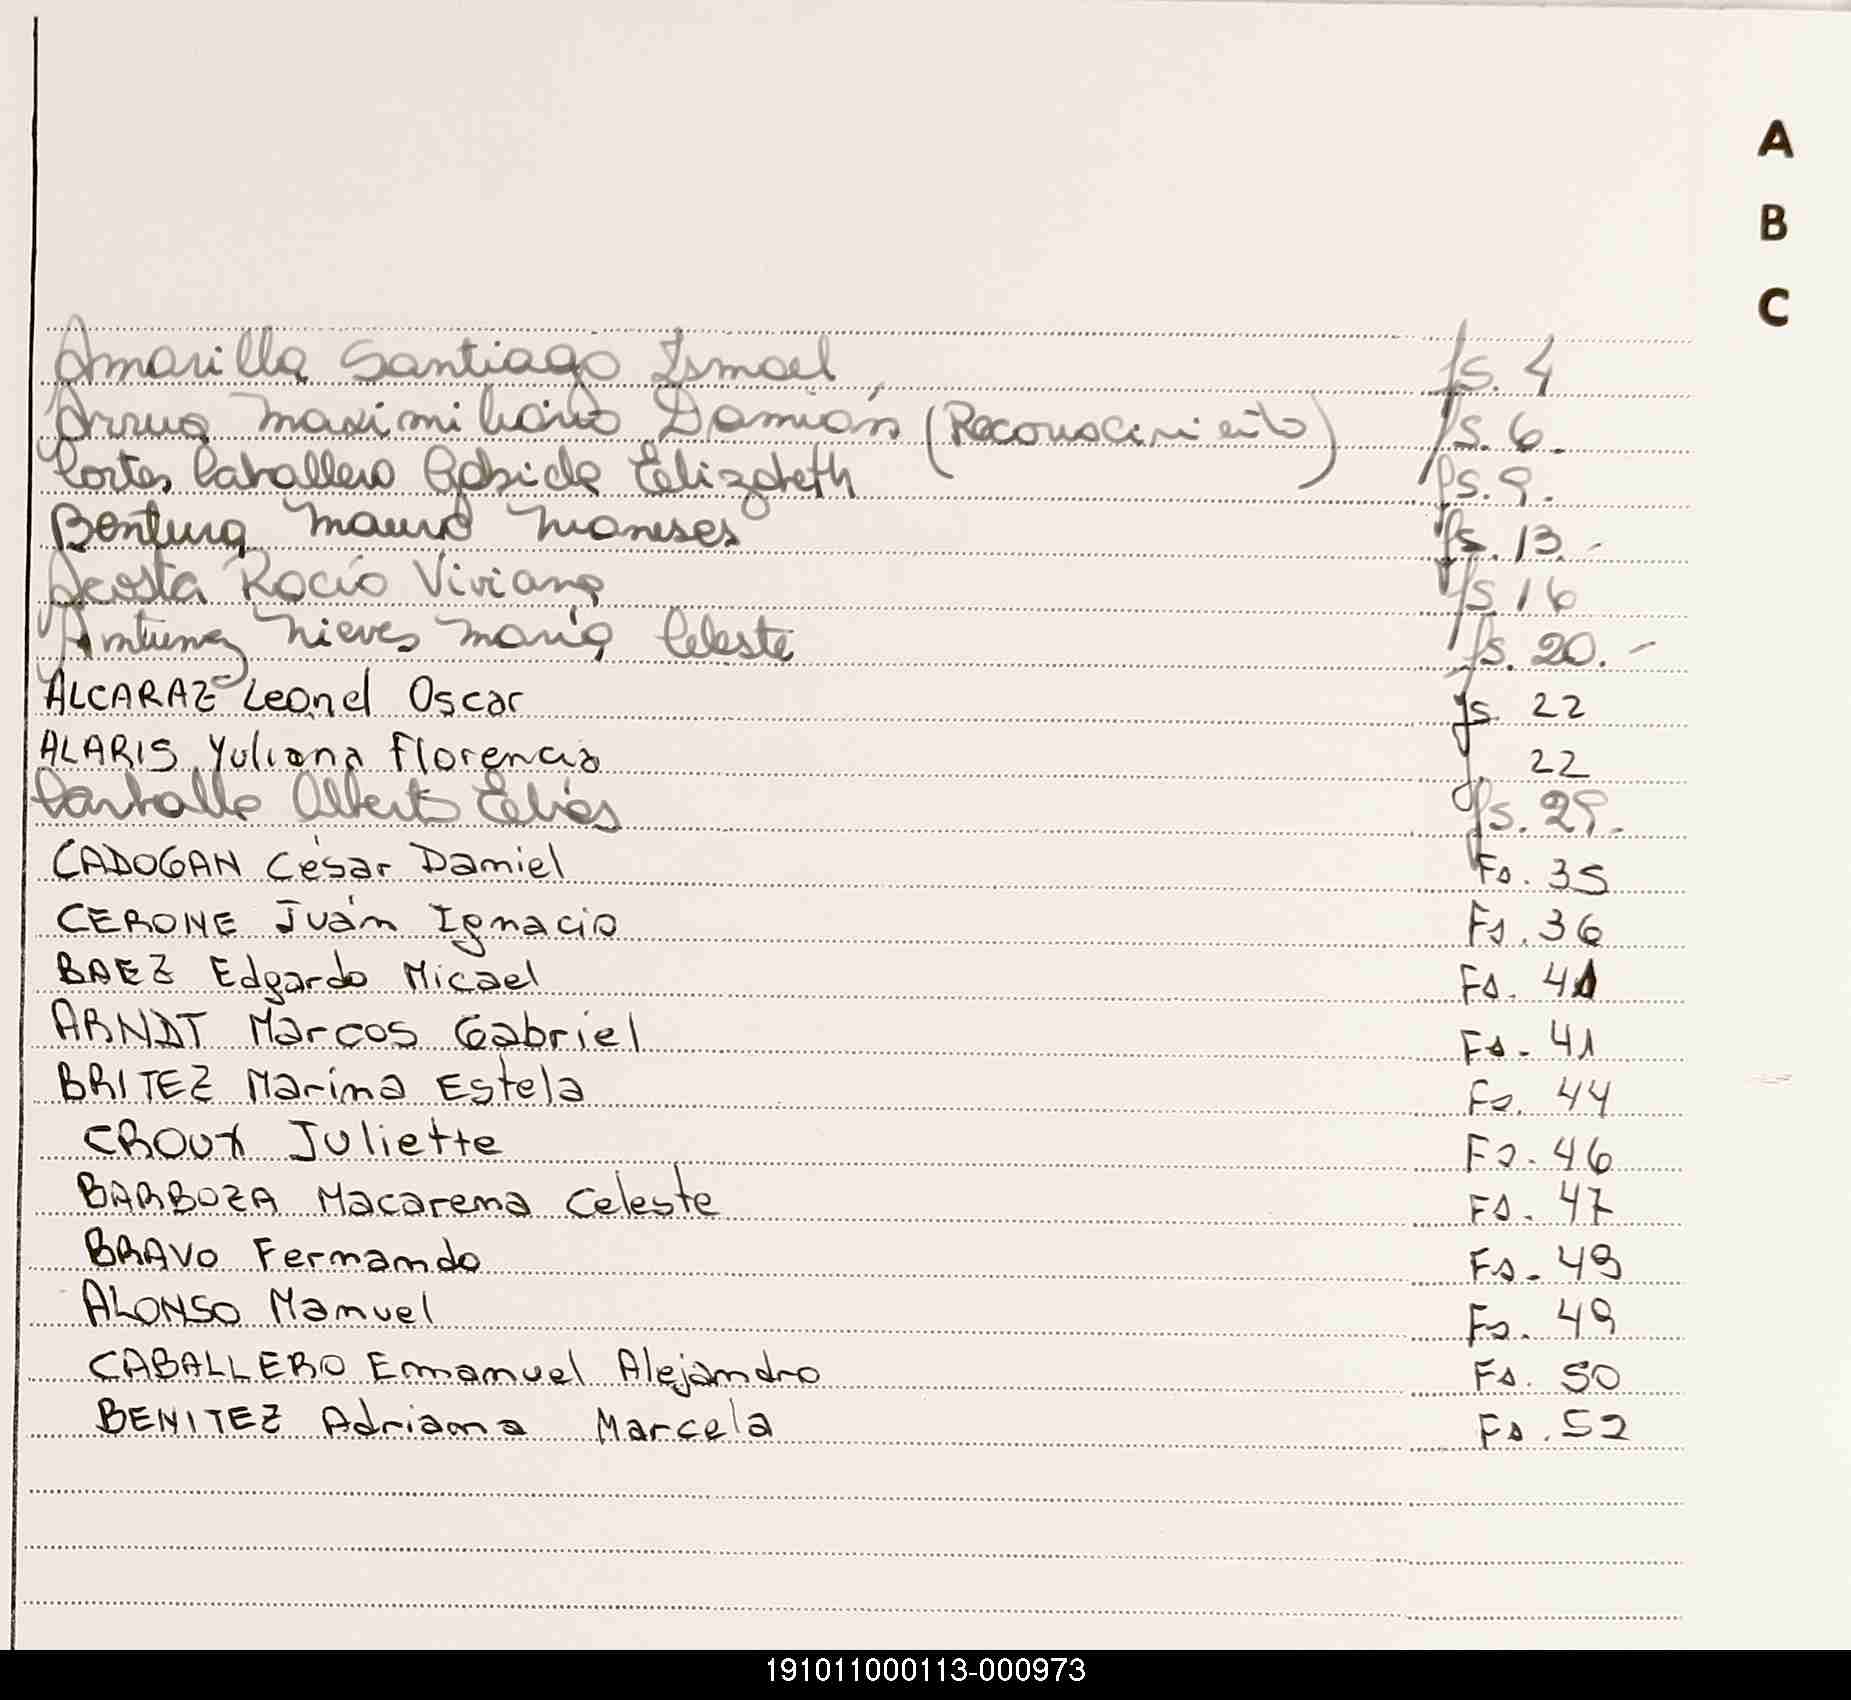 A
B
C
Amarilla Santiago Ismael fs. 4
Arrua Maximiliano Damián (Reconocimiento) fs. 6.
Cortes Caballero Gabriela Elizabeth fs. 9.
Mauro fs. 13.-
Acosta Rocío Viviana fs 16
Antunez Nieves María Celeste fs. 20.-
ALCARAZ Leonel Oscar fs. 22
ALARIS Yuliana Florencia 22
Carballo Alberto Elías fs. 29.
CADOGAN César Daniel Fs. 35
CERONE Juán Ignacio Fs. 36
BAEZ Edgardo Micael Fs. 41
ARNDT Marcos Gabriel Fs. 41
BRITEZ Marina Estela Fs. 44
CROUX Juliette Fs. 46
BARBOZA Macarena Celeste Fs. 47
BRAVO Fernando Fs. 49
ALONSO Manuel Fs. 49
CABALLERO Emanuel Alejandro Fs. 50
BENITEZ Adriana Marcela Fs. 52
191011000113-000973